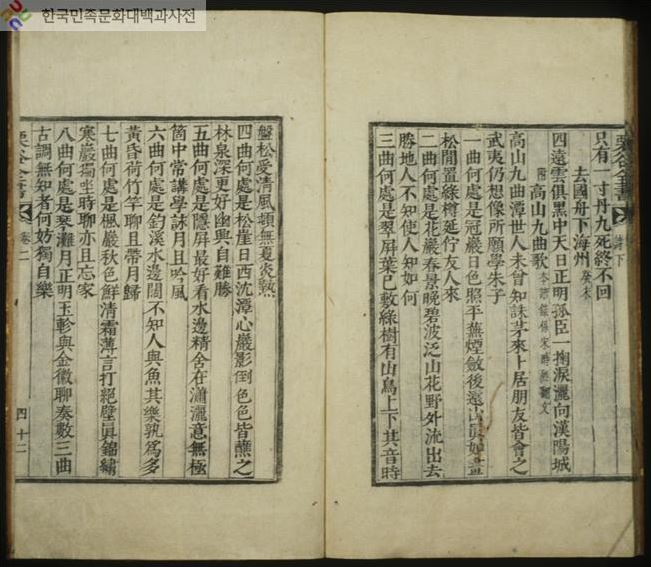 한국민족문화대백과사전
只有一寸丹九死終不回
去國舟下海州 癸未
四遠雲俱黑中天日正明孤臣一掬淚灑向漢陽城
附 高山九曲歌
高山九曲潭世人未曾知誅茅來卜居朋友皆會之
武夷仍想像所願學朱子
一曲何處是冠巖日色照平蕪煙斂後遠山眞如畫
松閒置綠樽延佇友人來
二曲何處是花巖春景晚碧波泛山花野外流出去
勝地人不知使人知如何
三曲何處是翠屛葉已敷綠樹有山鳥上下其音時
盤松受淸風頓無夏炎熱
四曲何處是松崖日西沈潭心巖影倒色色皆蘸之
林泉深更好幽興自難勝
五曲何處是隱屛最好看水邊精舍在瀟灑意無極
箇中常講學詠月且吟風
六曲何處是釣溪水邊闊不知人與魚其樂孰爲多
黃昏荷竹竿聊且帶月歸
七曲何處是楓巖秋色鮮淸霜薄言打絕壁眞錦繡
寒巖獨坐時聊亦且忘家
八曲何處是琴灘月正明玉軫與金徽聊奏數三曲
古調無知者何妨獨自樂
栗谷全書 卷二
四十二